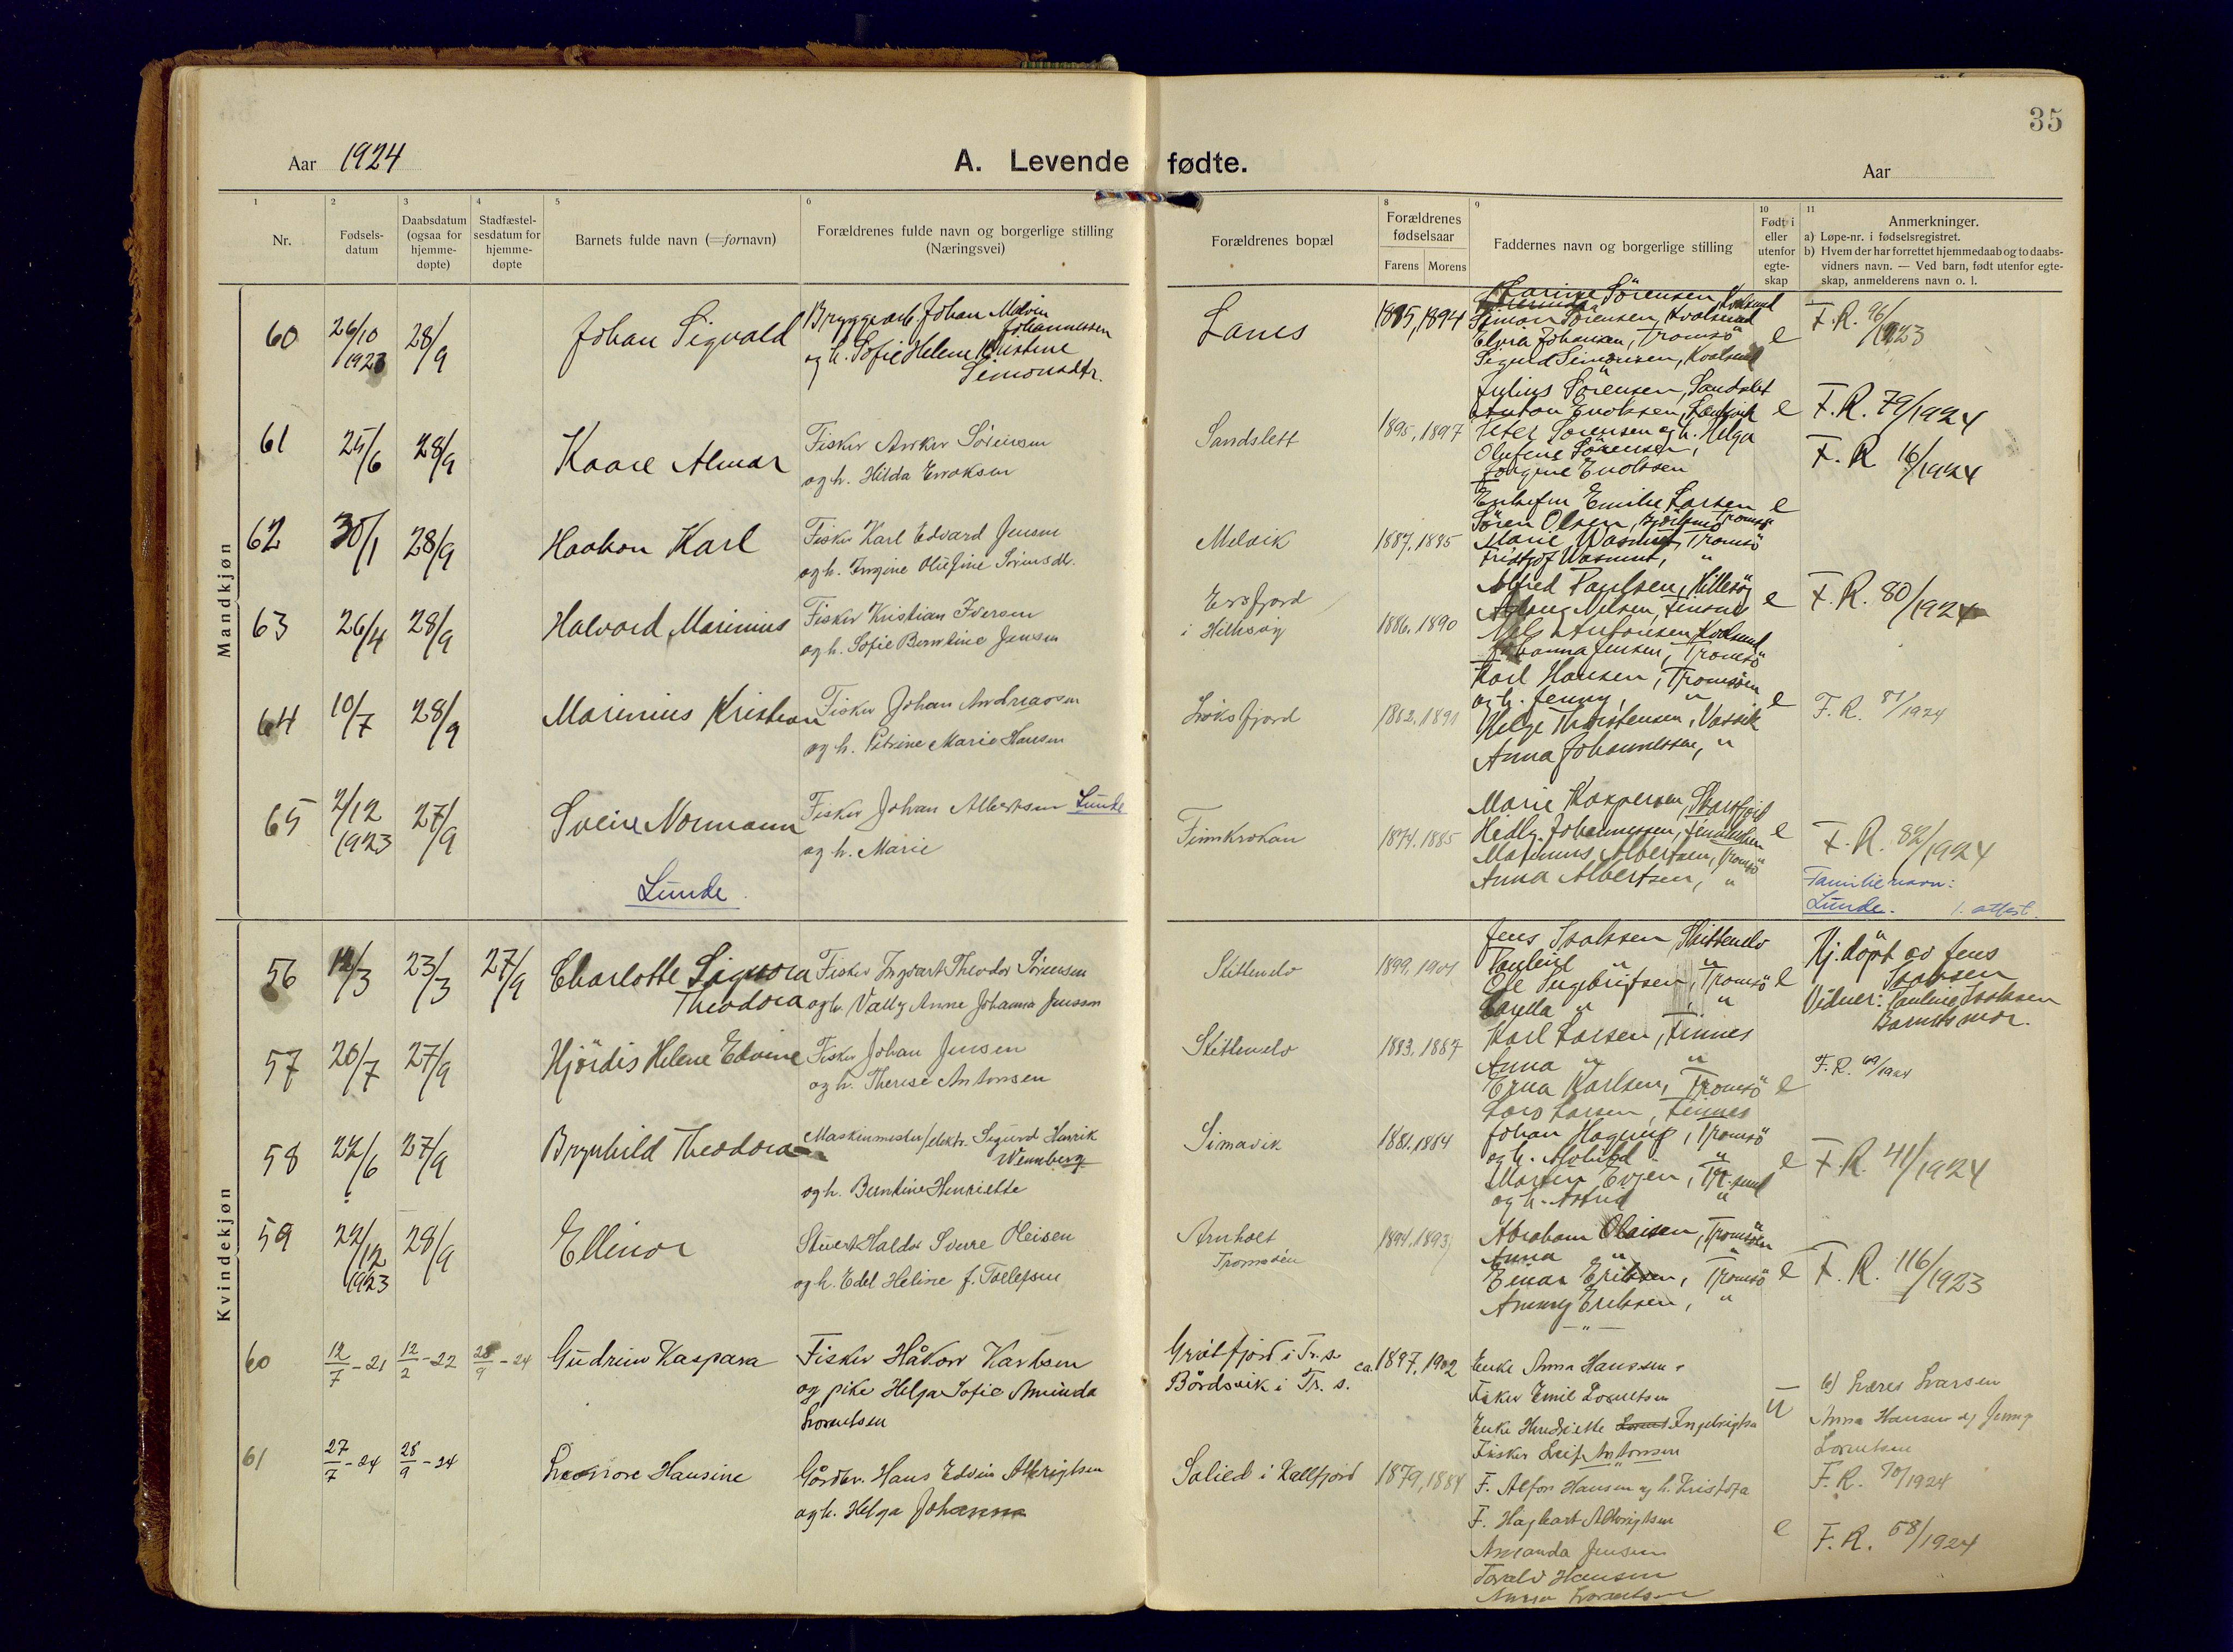 35
Aar 1924
A. Levende fødte.
Aar
1 2 3 4 5 6 8 9 10 11
Nr.
Fødsels-
datum
Daabsdatum
(ogsaa for
hjemme-
døpte)
Stadfæstel-
sesdatum for
hjemme-
døpte
Barnets fulde navn (=fornavn)
Forældrenes fulde navn og borgerlige stilling
(Næringsvei)
Forældrenes bopæl
Forældrenes
fødselsaar
Farens Morens
Faddernes navn og borgerlige stilling
Født i
eller
utenfor
egte-
skap
Anmerkninger.
a) Løpe-nr. i fødselsregistret.
b) Hvem der har forrettet hjemmedaab og to daabs-
vidners navn. — Ved barn, født utenfor egte-
skap, anmelderens navn o. l.
Mandkjøn
60 26/10 1923 28/9 Johan Sigvald
Bryggearb. Johan Melvin
Johannessen
og h. Sofie Helene Kristine
Simonsdtr.
Lanes 1895, 1894
Sörensen, Kvalsund
Simon Sörensen, Kvalsund
Elvira Johansen, Tromsö e
Sigurd Simonsen, Kvalsund
F.R. 96/1923
61 25/6 28/9 Kaare Almar
Fisker Anker Sörensen
og h. Hilda Enoksen
Sandslett 1895, 1897
Julius Sörensen, Sandslet
Anton Enoksen, e
Peter Sörensen og h. Helga
Olufine Sörensen,
Jörgine Enoksen
F.R. 79/1924
F.R 16/1924
62 30/1 28/9 Haakon Karl
Fisker Karl Edvard Jensen
og h. Jörgine Olufine Sörensdtr.
Melvik 1887, 1885
Enkefru Emilie Larsen e
Sören Olsen, Tromsö
Marie Wasmut, Tromsö
Fridtjof Wasmut, "
63 26/4 28/9 Halvard Marinius
Fisker Kristian Iversen
og h. Sofie Berntine Jensen
Ersfjord
i Hillesöy
1886, 1890
Alfred Paulsen, Hillesöy
Nilsen, Finsnes e
Nils Antonsen, Kvalsund
Johanna Jensen, Tromsö
F.R. 80/1924
64 10/7 28/9 Marinius Kristian
Fisker Johan Andreassen
og h. Petrine Marie Hansen
Löksfjord 1882, 1891
Karl Hansen, Tromsöen
og h. Jenny, " e
Helge Thorstensen, Vasvik
Anna Johannessen, "
F.R. 81/1924
65 2/12 1923 27/9 Svein Normann
Lunde.
Fisker Johan Albertsen Lunde
og h. Marie
Finnkroken 1874, 1885
Marie Kaspersen, Skarsfjord
Hedly Johannessen, e
Matinus Albertsen, Tromsö
Anna Albertsen, "
F.R. 82/1924
Familienavn:
Lunde. 1. attest.
Kvindekjøn
56 12/3 23/3 27/9 Charlotte Signora
Theodora
Fisker Ingvart Theodor Sörensen
og h. Vally Anne Johanna Jensen
Skittenelv 1899, 1901
Jens Isaksen Skittenelv
Pauline " "
Ole Ingebrigtsen, Tromsö e
" "
Hj. döpt av Jens
Isaksen
Vidner: Pauline Isaksen
Barnets mor.
57 20/7 27/9 Hjördis Helene Edvine
Fisker Johan Jensen
og h. Therese Antonsen
Skittenelv 1883, 1887
Karl Larsen, Finnes
Anna " "
Erna Karlsen, Tromsö e
Lars Larsen, Finnes
F.R. 69/1924
58 22/6 27/9 Brynhild Theodora
Maskinmester/elektr. Sigurd Henrik
Wennberg
og h. Berntine Henriette
Simavik 1881, 1884
Johan Hagerup, Tromsö
og h. " e
Martin Evjen, Tr.sund
og h. Astrid "
F.R. 41/1924
59 22/12 1923 28/9 Ellinor
Stuert Haldor Sverre Oleisen
og h. Edel Heline f. Tollefsen
Arnholt
Tromsöen
1894, 1893
Abraham Olaisen, Tromsöen
Anna " "
Einar Eriksen, Tromsö e
Eriksen, "
F.R. 116/1923
60 12/7 - 21 12/2 - 22 28/9 - 24 Gudrun Kaspara
Fisker Håkon Karlsen
og pike Helga Sofie Aminda
Lorentsen
Grötfjord i Tr.s.
Bårdsvik i Tr. s.
ca. 1897, 1902
Enke Anna Hanssen
Fisker Emil Lorentsen
Enke Henriette Ingebrigtsen
Fisker Leif Antonsen
U
b) Lars Larsen
Anna Hansen og Jenny
Lorentsen
F.R. 70/1924
61 27/7 - 24 28/9 - 24 Leonore Hansine
Gårdbr. Hans Edvin Albrigtsen
og h. Helga Johanna
Solied i Kallfjord 1879, 1884
F. Alfon Hansen og h. Kristofa
F. Hagbart Albrigtsen
Amanda Jensen
Torald Hansen
Anna Lorentsen
e F.R. 58/1924